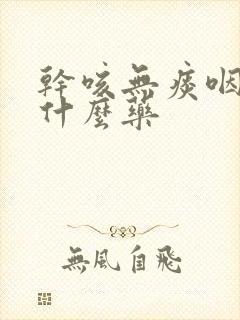 幹咳無痰咽
什麼藥
無風自飛